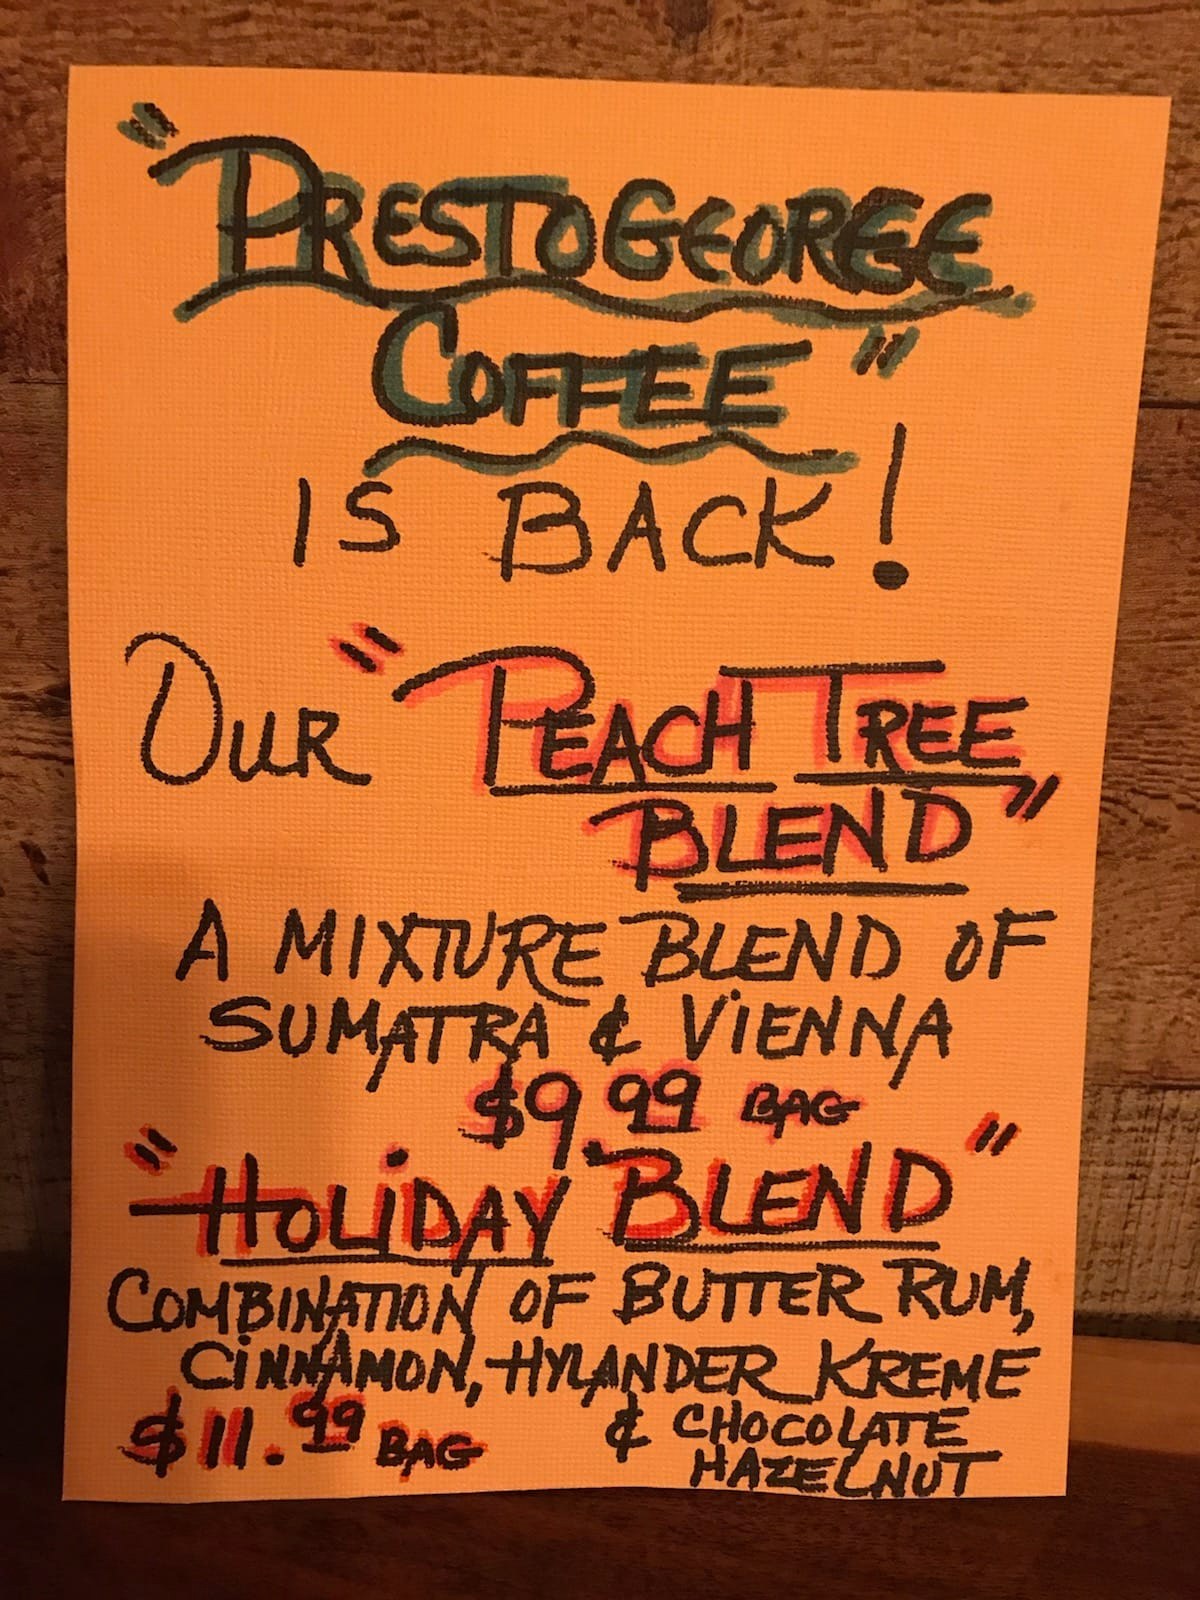 "PRESTOGEORGE
COFFEE"
IS BACK!
OUR "PEACH TREE
BLEND"
A MIXTURE BLEND OF
SUMATRA & VIENNA
$9.99 BAG
"HOLIDAY BLEND"
COMBINATION OF BUTTER RUM,
CINNAMON, HYLANDER KREME
& CHOCOLATE
HAZELNUT
$11.99 BAG